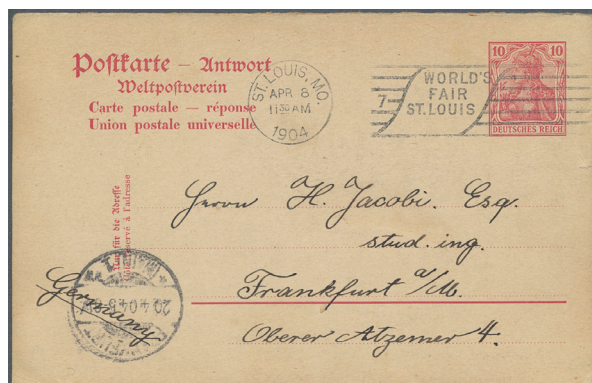 Postkarte — Antwort
Weltpostverein
Carte postale — réponse
Union postale universelle
ST. LOUIS, MO.
APR 8
11 30 AM
1904
7
WORLD'S
FAIR
ST. LOUIS
10 10
DEUTSCHES REICH
Nur für die Adresse
à l'adresse
Herrn H. Jacobi. Esq.
stud. ing.
Frankfurt a/M.
Oberer Atzemer 4.
Germany
20.4.04.